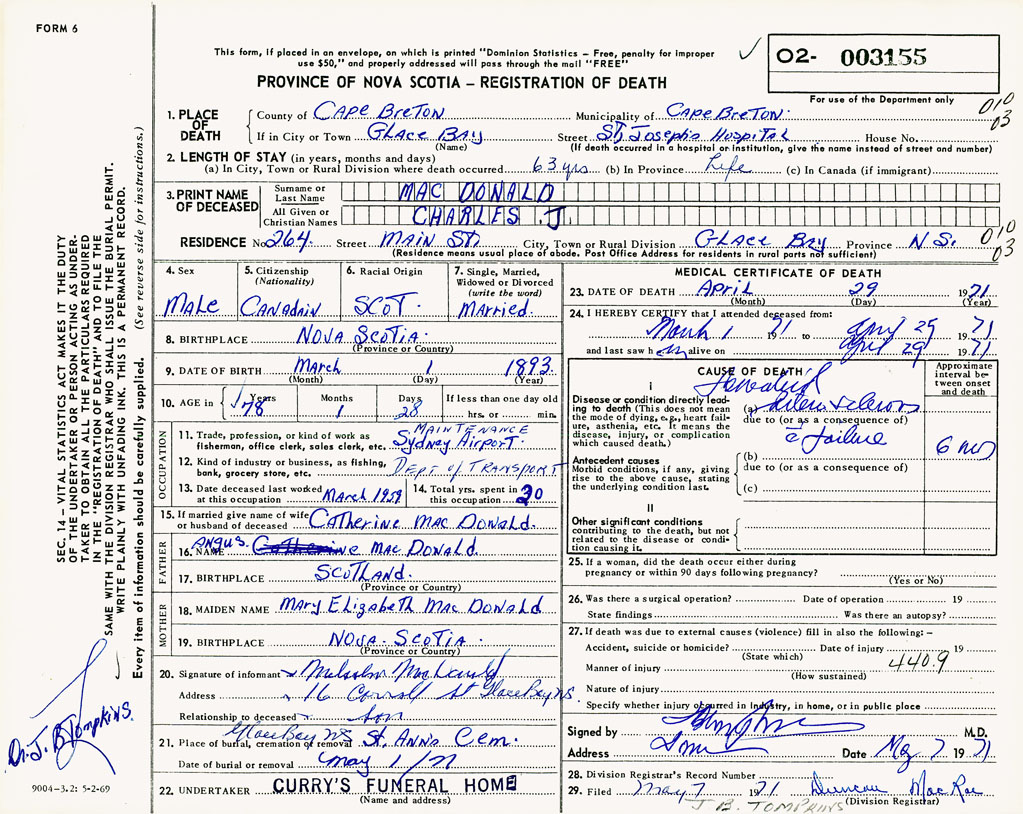 FORM 6
This form, if placed in an envelope, on which is printed "Dominion Statistics – Free, penalty for improper
use $50," and properly addressed will pass through the mail "FREE"
✓
O2- 003155
For use of the Department only
PROVINCE OF NOVA SCOTIA – REGISTRATION OF DEATH
010
03
1. PLACE OF DEATH
County of CAPE BRETON Municipality of CAPE BRETON.
If in City or Town GLACE BAY Street St. Joseph's Hospital House No.
(Name) (If death occurred in a hospital or institution, give the name instead of street and number)
2. LENGTH OF STAY (in years, months and days)
(a) In City, Town or Rural Division where death occurred 63 yrs (b) In Province Life (c) In Canada (if immigrant)
3. PRINT NAME OF DECEASED
Surname or Last Name MAC DONALD
All Given or Christian Names CHARLES J.
RESIDENCE No 264. Street MAIN St. City, Town or Rural Division GLACE BAY Province N S. 010
03
(Residence means usual place of abode. Post Office Address for residents in rural parts not sufficient)
4. Sex
MALE
5. Citizenship
(Nationality)
CANADAIN
6. Racial Origin
SCOT.
7. Single, Married,
Widowed or Divorced
(write the word)
MArried.
8. BIRTHPLACE NOVA SCOTIA.
(Province or Country)
9. DATE OF BIRTH MArch 1 1893.
(Month) (Day) (Year)
10. AGE in
Years 78
Months 1
Days 28
If less than one day old
hrs. or min.
OCCUPATION
11. Trade, profession, or kind of work as
fishermen, office clerk, sales clerk, etc.
MAINTENANCE
Sydney Airport.
12. Kind of industry or business, as fishing,
bank, grocery store, etc.
DEPT of TRANSPORT
13. Date deceased last worked
at this occupation March 1959
14. Total yrs. spent in
this occupation 20
15. If married give name of wife
or husband of deceased CATherine MAC DONALD.
FATHER
16. NAME ANGUS. MAC DONALD.
17. BIRTHPLACE SCOTLAND.
(Province or Country)
MOTHER
18. MAIDEN NAME MARY ELIZABETH MAC DONALD
19. BIRTHPLACE NOVA-SCOTIA.
(Province or Country)
20. Signature of informant Malcolm MacDonald
Address 16 St Glace Bay NS
Relationship to deceased Son
21. Place of burial, cremation or removal Glace Bay NS St. ANNS Cem.
Date of burial or removal May 1/71
22. UNDERTAKER CURRY'S FUNERAL HOME
(Name and address)
MEDICAL CERTIFICATE OF DEATH
23. DATE OF DEATH April 29 1971
(Month) (Day) (Year)
24. I HEREBY CERTIFY that I attended deceased from:
March 1 1971 to April 29 1971
and last saw him alive on April 29 1971
CAUSE OF DEATH
Approximate
interval be-
tween onset
and death
I
Disease or condition directly lead-
ing to death (This does not mean
the mode of dying, e.g., heart fail-
ure, asthenia, etc. It means the
disease, injury, or complication
which caused death.)
(a)
due to (or as a consequence of)
failure
Antecedent causes
Morbid conditions, if any, giving
rise to the above cause, stating
the underlying condition last.
(b)
due to (or as a consequence of)
(c)
II
Other significant conditions
contributing to the death, but not
related to the disease or condi-
tion causing it.
25. If a woman, did the death occur either during
pregnancy or within 90 days following pregnancy?
(Yes or No)
26. Was there a surgical operation? Date of operation 19
State findings Was there an autopsy?
27. If death was due to external causes (violence) fill in also the following: –
Accident, suicide or homicide? Date of injury 19
(State which)
440.9
Manner of injury
(How sustained)
Nature of injury
Specify whether injury occurred in Industry, in home, or in public place
Signed by M.D.
Address Date May 7 1971
28. Division Registrar's Record Number
29. Filed May 7 1971 Duncan MacRae
(Division Registrar)
J B. TOMPKINS
SEC. 14 – VITAL STATISTICS ACT MAKES IT THE DUTY
OF THE UNDERTAKER OR PERSON ACTING AS UNDER-
TAKER TO OBTAIN ALL THE PARTICULARS REQUIRED
IN THE "REGISTRATION OF DEATH" AND TO FILE THE
SAME WITH THE DIVISION REGISTRAR WHO SHALL ISSUE THE BURIAL PERMIT.
WRITE PLAINLY WITH UNFADING INK. THIS IS A PERMANENT RECORD.
Every item of information should be carefully supplied. (See reverse side for instructions.)
Dr. J. B Tompkins.
9004–3.2: 5-2-69